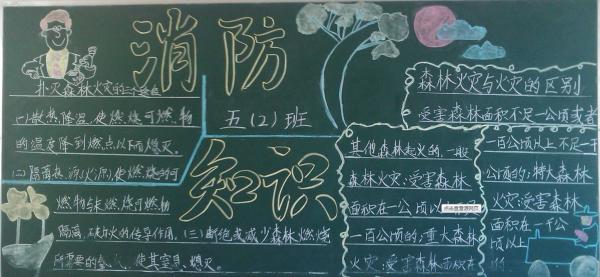 消防
知识
五(2)班
扑灭森林火灾的三个途径
(一)散热降温,使燃烧可燃物
的温度降到燃点以下而熄灭。
(二)隔离热源(火源),使燃烧的可
燃物与未燃烧可燃物
隔离,破坏火的传导作用,(三)断绝或减少森林燃烧
所需要的氧气,使其窒息熄灭。
森林火灾与火灾的区别
受害森林面积不足一公顷或者
其他森林起火的,一般
森林火灾:受害森林
面积在一公顷以
一百公顷的;重大森林
火灾:受害森林面积在
一百公顷以上不足一千
公顷的;特大森林
火灾:受害森林
面积在一千公
顷以上
的